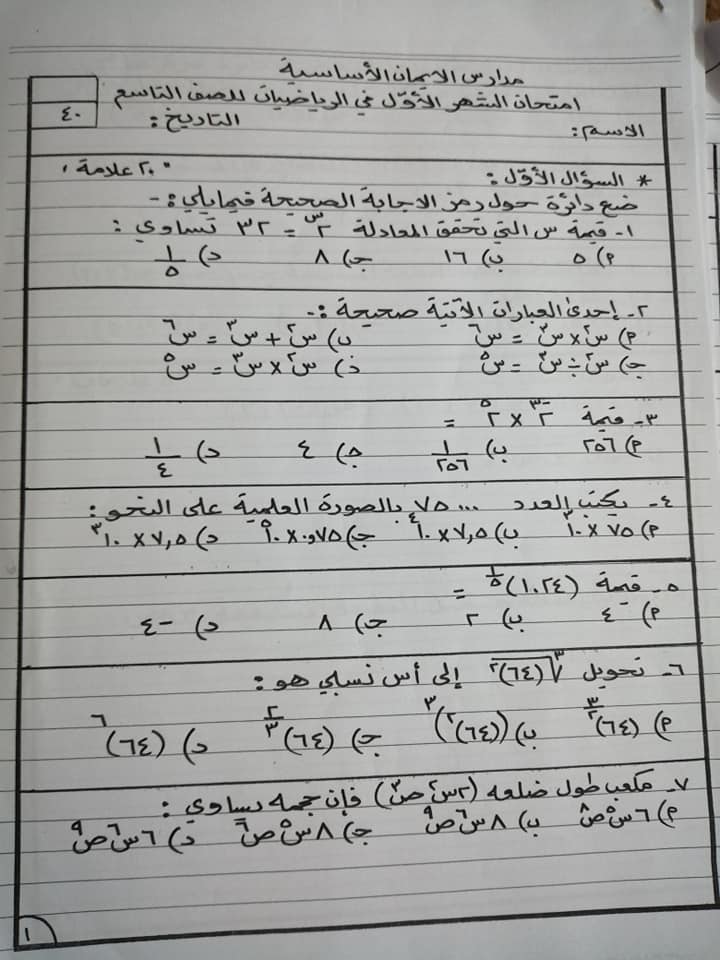 مدارس الايمان الأساسية
امتحان الشهر الأوّل في الرياضيات للصف التاسع
الاسم: التاريخ: ٤٠
* السؤال الأوّل: ٢٠ علامة
ضع دائرة حول رمز الاجابة الصحيحة فيما يلي:-
١- قيمة س التي تحقق المعادلة ٢^س = ٣٢ تساوي:
أ) ٥ ب) ١٦ ج) ٨ د) ١/٥
٢- إحدى العبارات الآتية صحيحة:-
أ) س^٢ × س^٣ = س^٦ ب) س^٢ + س^٣ = س^٦
ج) س^٢ ÷ س^٣ = س^٥ د) س^٢ × س^٣ = س^٥
٣- قيمة ٢^-٣ × ٢^٥ =
أ) ٢٥٦ ب) ١/٢٥٦ ج) ٤ د) ١/٤
٤- يكتب العدد ٧٥٠٠٠ بالصورة العلمية على النحو:
أ) ٧٥ × ١٠^٣ ب) ٧,٥ × ١٠^٤ ج) ٠,٧٥ × ١٠^٥ د) ٧,٥ × ١٠^٣
٥- قيمة (١٠٢٤)^١/٥ =
أ) ٤ ب) ٢ ج) ٨ د) -٤
٦- تحويل ٣√(٦٤)^٢ إلى أس نسبي هو:
أ) (٦٤)^٣/٢ ب) ((٦٤)^٢)^٣ ج) (٦٤)^٢/٣ د) (٦٤)^٦
٧- مكعب طول ضلعه (٢س^٢ ص^٣) فإن حجمه يساوي:
أ) ٦س^٥ ص^٨ ب) ٨س^٦ ص^٩ ج) ٨س^٥ ص^٦ د) ٦س^٦ ص^٩
١